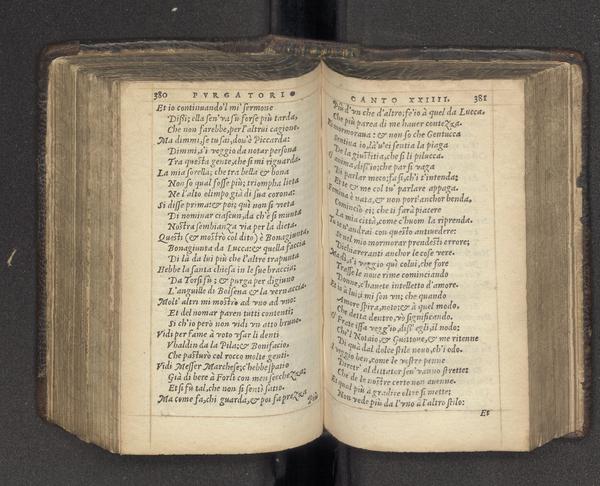 380 PVRGATORIO
Et io continuando'l mi' sermone
Dissi; ella sen' va su forse più tarda,
Che non farebbe, per l'altrui cagione.
Ma dimmi, se tu sai, dou'è Piccarda:
Dimmi, s'i veggio da notar persona
Tra questa gente, che si mi riguarda.
La mia sorella; che tra bella & bona
Non so qual fosse più; triompha lieta
Ne l'alto olimpo già di sua corona:
Si disse prima: & poi; quì non si vieta
Di nominar ciascun, da ch'è si munta
Nostra sembianza via per la dieta.
Questi (& mostrò col dito) è Bonagiunta,
Bonagiunta da Lucca: & quella faccia
Di là da lui più che l'altre trapunta
Hebbe la santa chiesa in le sue braccia:
Da Torsi fù; & purga per digiuno
L'anguille di Bolsena & la vernaccia.
Molt' altri mi mostrò ad vno ad vno:
Et del nomar paren tutti contenti;
Si ch'io però non vidi vn atto bruno.
Vidi per fame à voto vsar li denti
Vbaldin da la Pila; & Bonifacio,
Che pasturò col rocco molte genti.
Vidi Messer Marchese; c'hebbe spatio
Già di bere à Forlì con men secchezza;
Et sì fù tal, che non si sentì satio.
Ma come fa, chi guarda, & poi fa prezza
Più
CANTO XXIIII. 381
Più d'vn che d'altro; fe'io à quel da Lucca,
Che più parea di me hauer contezza.
mormoraua: & non so che Gentucca
Sentiua io, là'u'ei sentia la piaga
De la giustitia, che sì li pilucca.
O anima, diss'io, che par si vaga
Di parlar meco; fa sì, ch'i t'intenda;
Et te & me col tu' parlare appaga.
Femina è nata, & non port'anchor benda,
Cominciò ei; che ti farà piacere
La mia città, come c'huom la riprenda.
Tu te n'andrai con questo antiuedere:
Se nel mio mormorar prendesti errore;
Dichiareranti anchor le cose vere.
Ma dì, s'i veggio quì colui, che fore
Trasse le noue rime cominciando
Donne, c'hauete intelletto d'amore.
Et io à lui; i mi son vn; che quando
Amore spira, noto: & à quel modo,
Che detta dentro, vò significando.
O Frate issa vegg'io, diss'egli, il nodo;
Che'l Notaio, & Guittone, & me ritenne
Di quà dal dolce stile nouo, ch'i odo.
I veggio ben, come le vostre penne
Diretr' al dittator sen' vanno strette;
Che de le nostre certo non auenne.
Et qual più à gradire oltre si mette;
Non vede più da l'vno à l'altro stilo:
Et